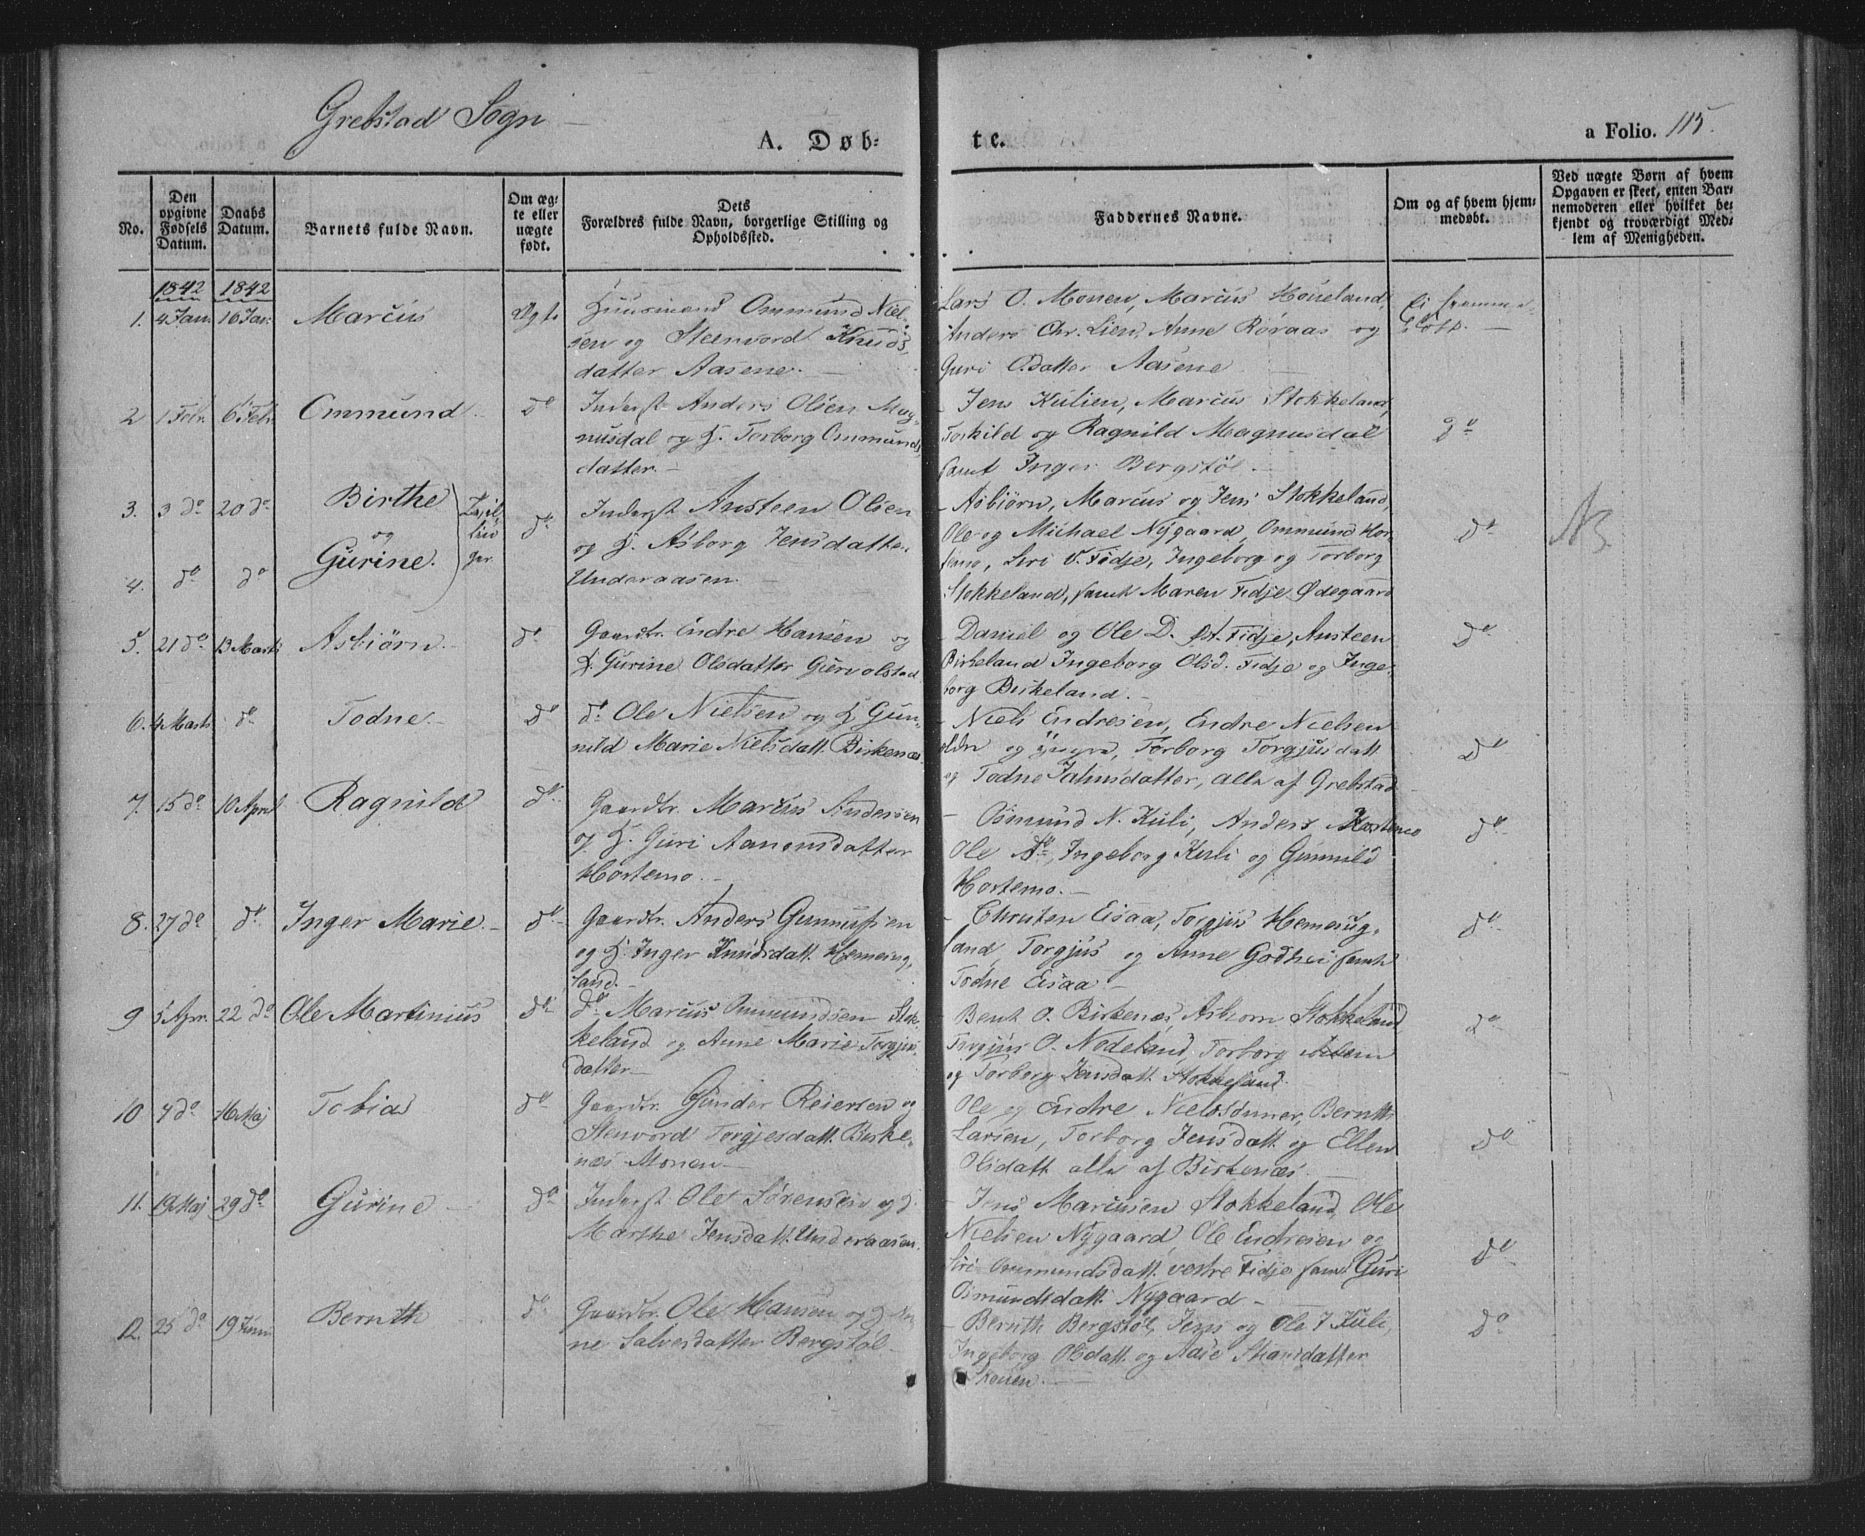 Grebstad Sogn
A. Døb-
te.
a Folio. 115.
No.
Den opgivne Fødsels Datum.
Daabs Datum.
Barnets fulde Navn.
Om ægte eller uægte født.
Dets
Forældres fulde Navn, borgerlige Stilling og
Opholdssted.
Faddernes Navne.
Om og af hvem hjem-
medøbt.
Ved uægte Børn af hvem
Opgaven er skeet, enten Bar-
nemoderen eller hvilket be-
kjendt og troværdigt Med-
lem af Menigheden.
1842 1842
1. 4 Jan. 16 Jan. Marcus Ægte Huusmand Ommund Niel-
sen og Steenvord Knuds
datter Aasene.
Lars O. Monen, Marcus Houeland,
Anders Chr. Lien, Anne Røraas og
Guri Odatter Aasene
Ei hjemme-
døbt.
2 1 Febr. 6 Febr. Ommund d° Inderst Anders Olsen Mag-
nusdal og H. Torborg Ommunds
datter.
- Jens Kulien, Marcus Stokkeland,
Torkild og Ragnild Magnusdal
samt Inger Bergstøl.
d°
3. 3 d° 20 d° Birthe
og
4. d° d° Gurine. Tvillinger
d° Inderst Austeen Olsen
og H. Asborg Jensdatter
Underaasen.
- Asbiørn, Marcus og Jens Stokkeland,
Ole og Michael Nygaard, Ommund Hor-
temo, Siri V. Fidje, Ingeborg og Torborg
Stokkeland, samt Maren Fidje Ødegaard
d°
5. 21 d° 13 Marts Asbiørn. d° Gaardbr. Endre Hansen og
H. Gurine Olsdatter Gurvolstad
- Daniel og Ole D. Øst. Fidje, Austeen
Birkeland Ingeborg Olsd. Fidje og Inge-
borg Birkeland.
d°
6. 4 Marts d° Todne d° d° Ole Nielsen og H Gun-
nild Marie Nielsdatt. Birkenæs
- Niels Endresen, Endre Nielsen
ældre og yngre, Torborg Torgjusdatt
og Todne Jahnsdatter, alle af Grebstad
d°
7. 15 d° 10 April Ragnild d° Gaardbr. Marcus Andersen
og H. Guri Aanonsdatter
Hortemo.
- Osmund N. Kuli, Anders Hortemo
Ole d°, Ingeborg Kuli og Gunnild
Hortemo.
d°
8. 27 d° d° Inger Marie. d° Gaardbr. Anders Gunnufsen
og H. Inger Knudsdatt. Hemeing-
land.
- Christen Eisaa, Torgjus Hemeiug-
land, Torgjus og Anne Godhei samt
Todne Eisaa
d°
9 5 Apr. 22 d° Ole Martinius d° d° Marcus Ommundsen Stok-
keland og Anne Marie Torgjus-
datter
- Bent O. Birkenæs, Asbiorn Stokkeland
Torgjus O. Nodeland, Torborg
og Torborg Jensdatt. Stokkeland.
d°
10 4 d° 16 Maj Tobias d° Gaardbr. Gunder Reiersen og
Stenvord Torgjesdatt. Birke-
næs Monen
Ole og Endre Nielssønner, Bernth
Larsen, Torborg Jensdatt. og Ellen
Olsdatt. alle af Birkenæs.
d°
11. 19 Maj 29 d° Gurine d° Inderst Ole Sørensen og H.
Marthe Jensdatt. Underaasen.
- Jens Marcusen Stokkeland, Ole
Nielsen Nygaard, Ole Endresen og
Siri Ommundsdatt. vestre Fidje samt Guri
Osmundsdatt. Nygaard
d°
12. 25 d° 19 Juni Bernth d° Gaardbr. Ole Hansen og H.
ne Salvesdatter Bergstøl
- Bernth Bergstøl, Jens og Ole J Kuli,
Ingeborg Olsdatt. og Aase
Skouen.
d°